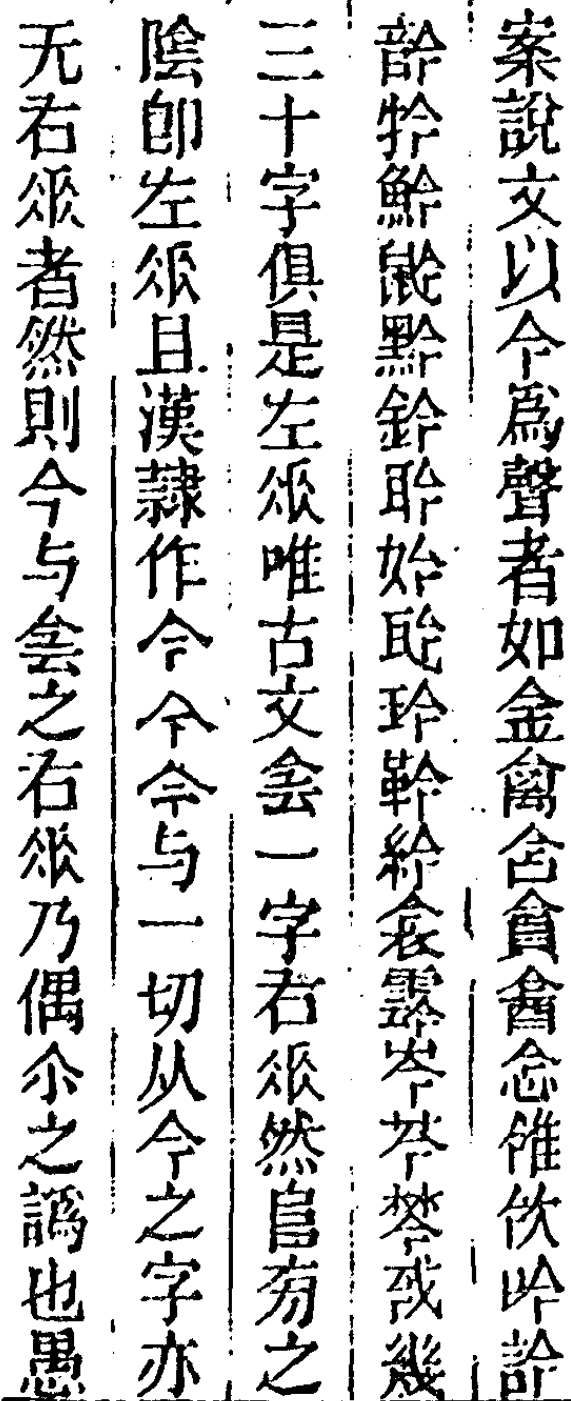 案說文以今爲聲者如金禽含貪酓念雂㱃吟訡
䪩牪鮯鼢黔鈐聆妗耹玲靲紟衾霒岑芩棽㦰幾
三十字俱是左𠂢唯古文侌一字右𠂢然𨸏旁之
陰卽左𠂢且漢隸作今今今与一切从今之字亦
无右𠂢者然則今与侌之右𠂢乃偶尒之譌也愚